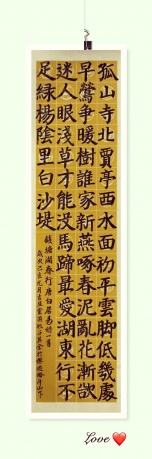 孤山寺北賈亭西水面初平雲脚低幾處
早鶯爭暖樹誰家新燕啄春泥亂花漸欲
迷人眼淺草才能没馬蹄最愛湖東行不
足緑楊陰里白沙堤
錢塘湖春行唐白居易詩一首
Love ❤️